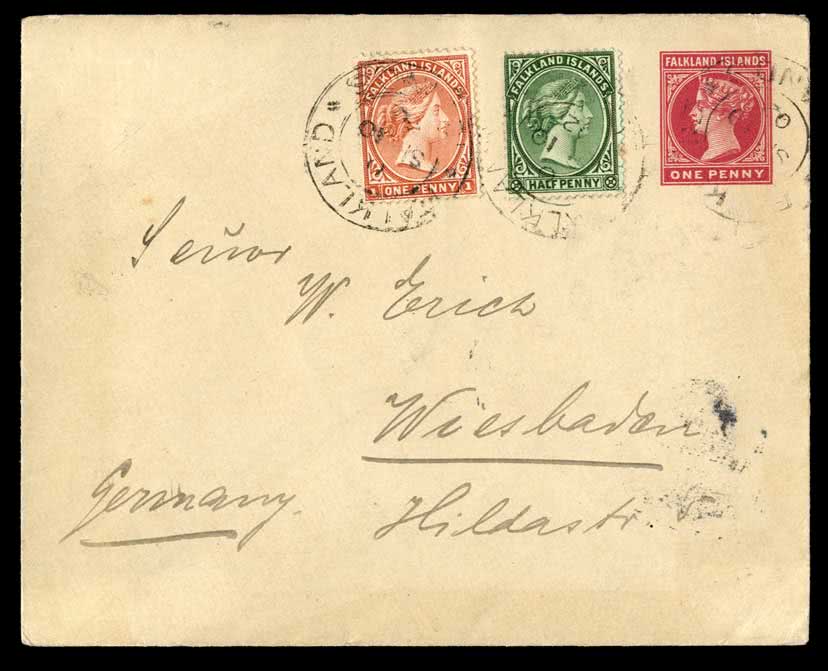 FALKLAND ISLANDS
1 ONE PENNY 1
FALKLAND ISLANDS
HALF PENNY
FALKLAND ISLANDS
ONE PENNY
Señor
W. Erich
Wiesbaden
Germany.
Hildastr